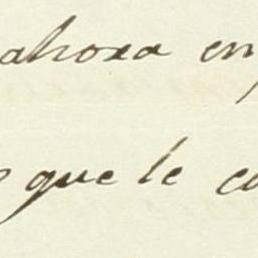 ahora en
que le co